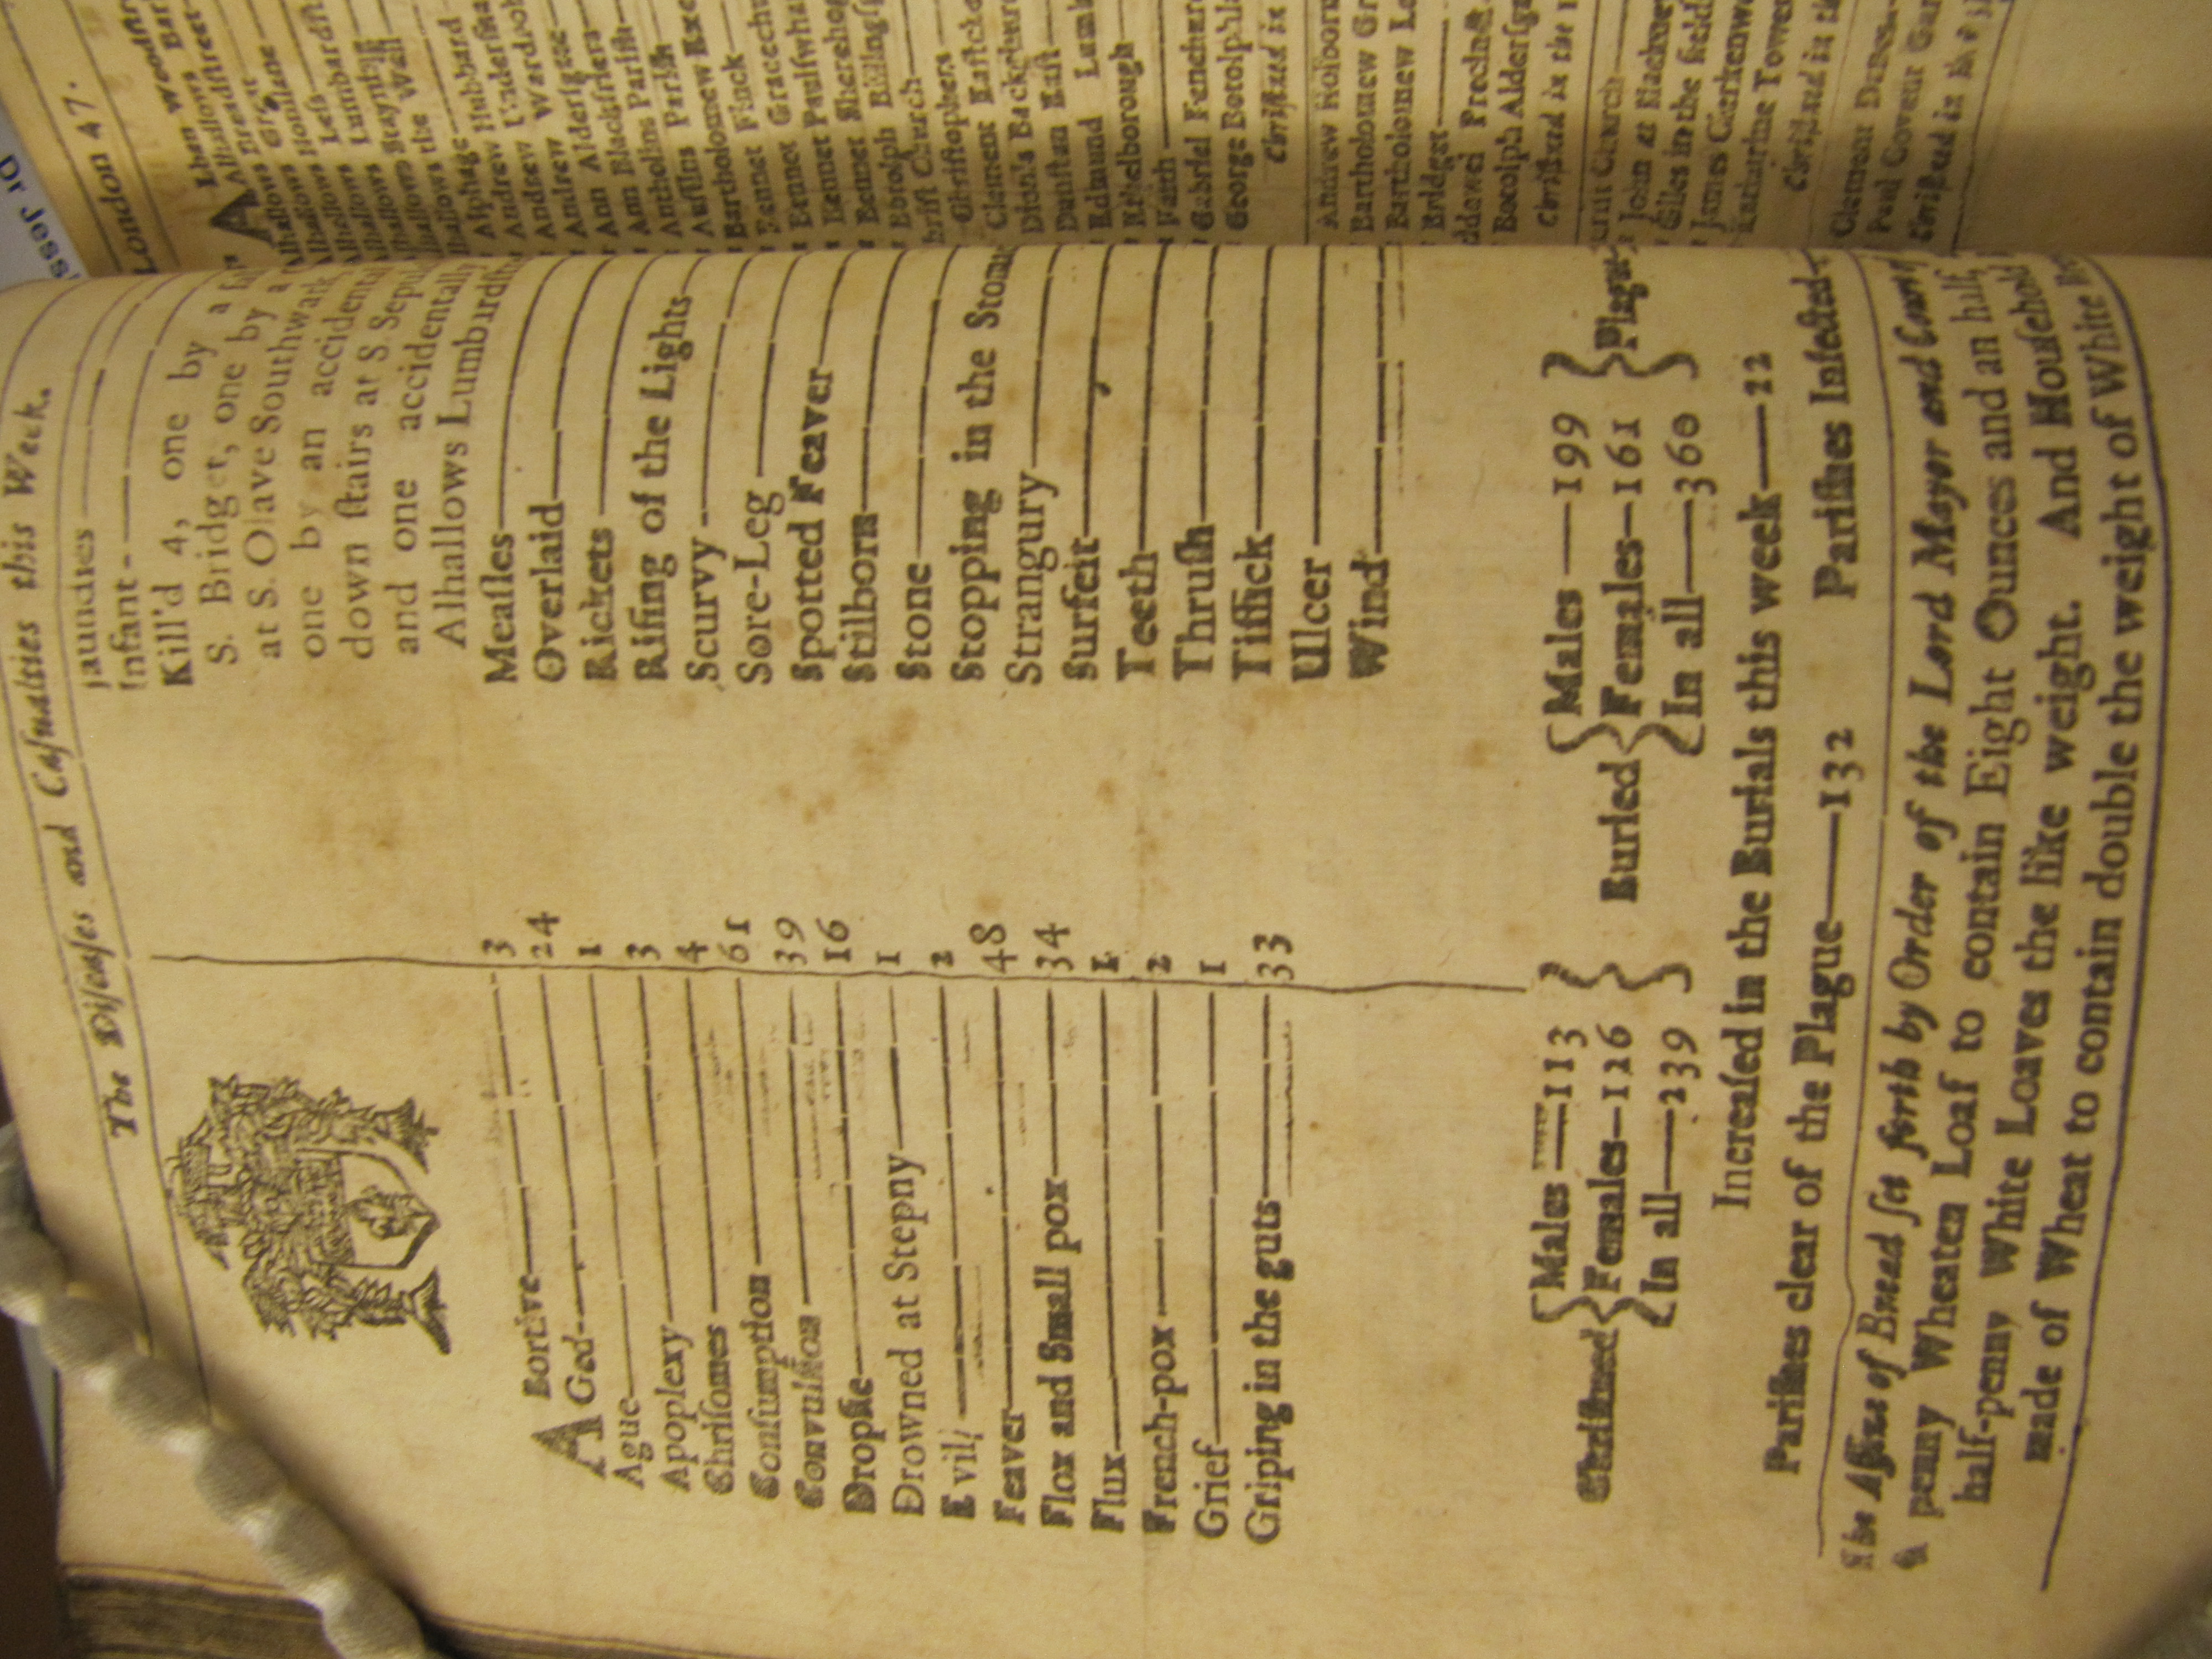 The Diſeaſes and Caſualties this Week.
ABortive 3
Aged 24
Ague 1
Apoplexy 3
Chriſomes 4
Conſumption 61
Convulſion 39
Dropſie 16
Drowned at Stepny 1
Evil 2
Feaver 48
Flox and Small pox 34
Flux 1
French-pox 2
Grief 1
Griping in the guts 33
Jaundies
Infant
Kill'd 4, one by a
S. Bridget, one by a
at S. Olave Southwark
one by an accidental
down ſtairs at S. Sepul
and one accidentally
Alhallows Lumbardſt
Meaſles
Overlaid
Rickets
Riſing of the Lights
Scurvy
Sore-Leg
Spotted Feaver
Stilborn
Stone
Stopping in the Stom
Strangury
Surfeit
Teeth
Thruſh
Tiſſick
Ulcer
Wind
Chriſtned { Males—113 Females—126 In all—239 } Buried { Males—199 Females—161 In all—360 } Plague
Increaſed in the Burials this week—22
Pariſhes clear of the Plague—132 Pariſhes Infected
The Aſſize of Bread ſet forth by Order of the Lord Mayor and Court
A penny Wheaten Loaf to contain Eight Ounces and an half,
half-penny White Loaves the like weight. And Houſehold
made of Wheat to contain double the weight of White
London 47.
Alban Woodſtr
Alhallows Bark
Alhallows Breadſtreet
Alhallows Great
Alhallows Honilane
Alhallows Leſs
Alhallows Lumbardſt
Alhallows Stayning
Alhallows the Wall
Alphage
Andrew Hubbard
Andrew Underſha
Andrew Wardrob
Ann Alderſgate
Ann Blackfriers
Antholins Pariſh
Auſtins Pariſh
Bartholomew Exc
Bennet Finck
Bennet Gracechu
Bennet Paulſwha
Bennet Sherehog
Botolph Billingſg
Chriſt Church
Chriſtophers
Clement Eaſtche
Dionis Backchurc
Dunſtan Eaſt
Edmund Lumb
Ethelborough
Faith
Gabriel Fenchur
George Botolphla
Chriſtned in
Andrew Holborn
Bartholomew Gr
Bartholomew Le
Bridget
Bridewel Precinct
Botolph Alderſga
Chriſtned in the
Chriſt Church
John at Hackney
Giles in the fields
James Clerkenw
Katharine Tower
Chriſtned in the
Clement Danes
Paul Covent Gar
Chriſtned in the
Dr Jess